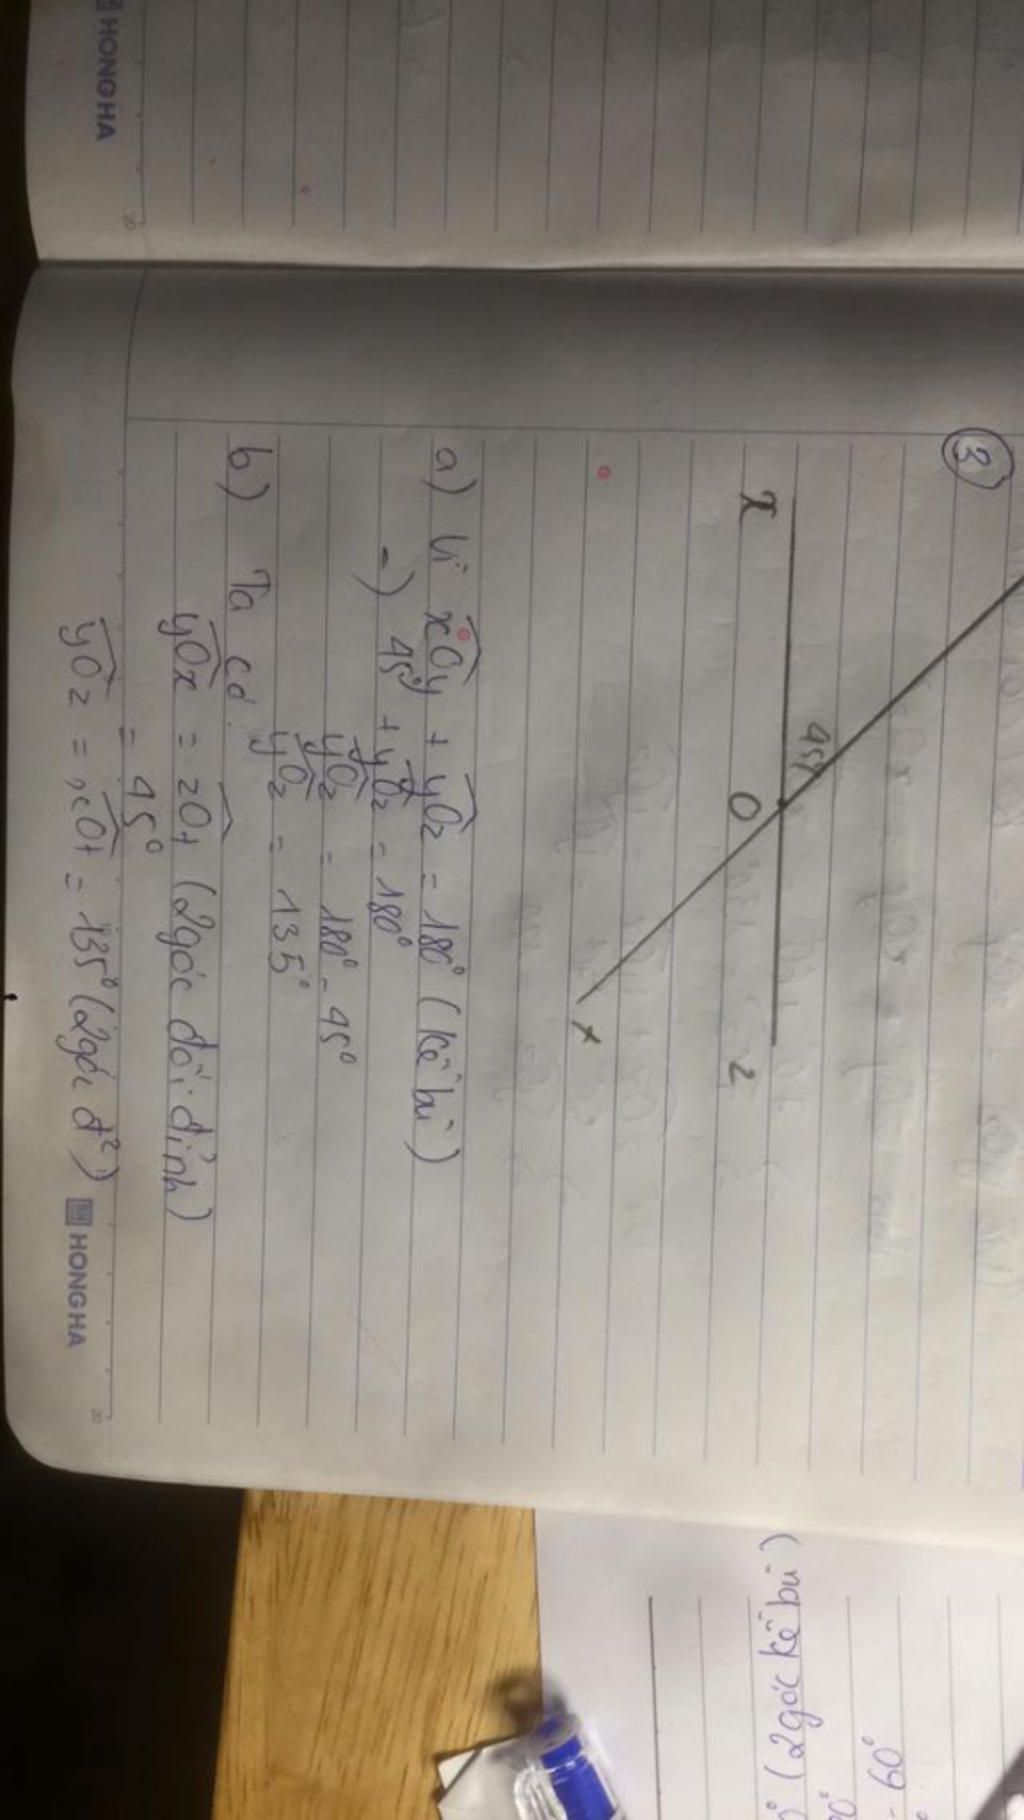 HONG HA
20
3
45°
x
O
z
t
a) Vì xOy + yOz = 180° (kề bù)
=) 45° + yOz = 180°
yOz = 180° - 45°
yOz = 135°
b) Ta có:
yOx = zOt (2 góc đối đỉnh)
= 45°
yOz = xOt = 135° (2 góc đ²)
HONG HA
20
(2 góc kề bù)
- 60°